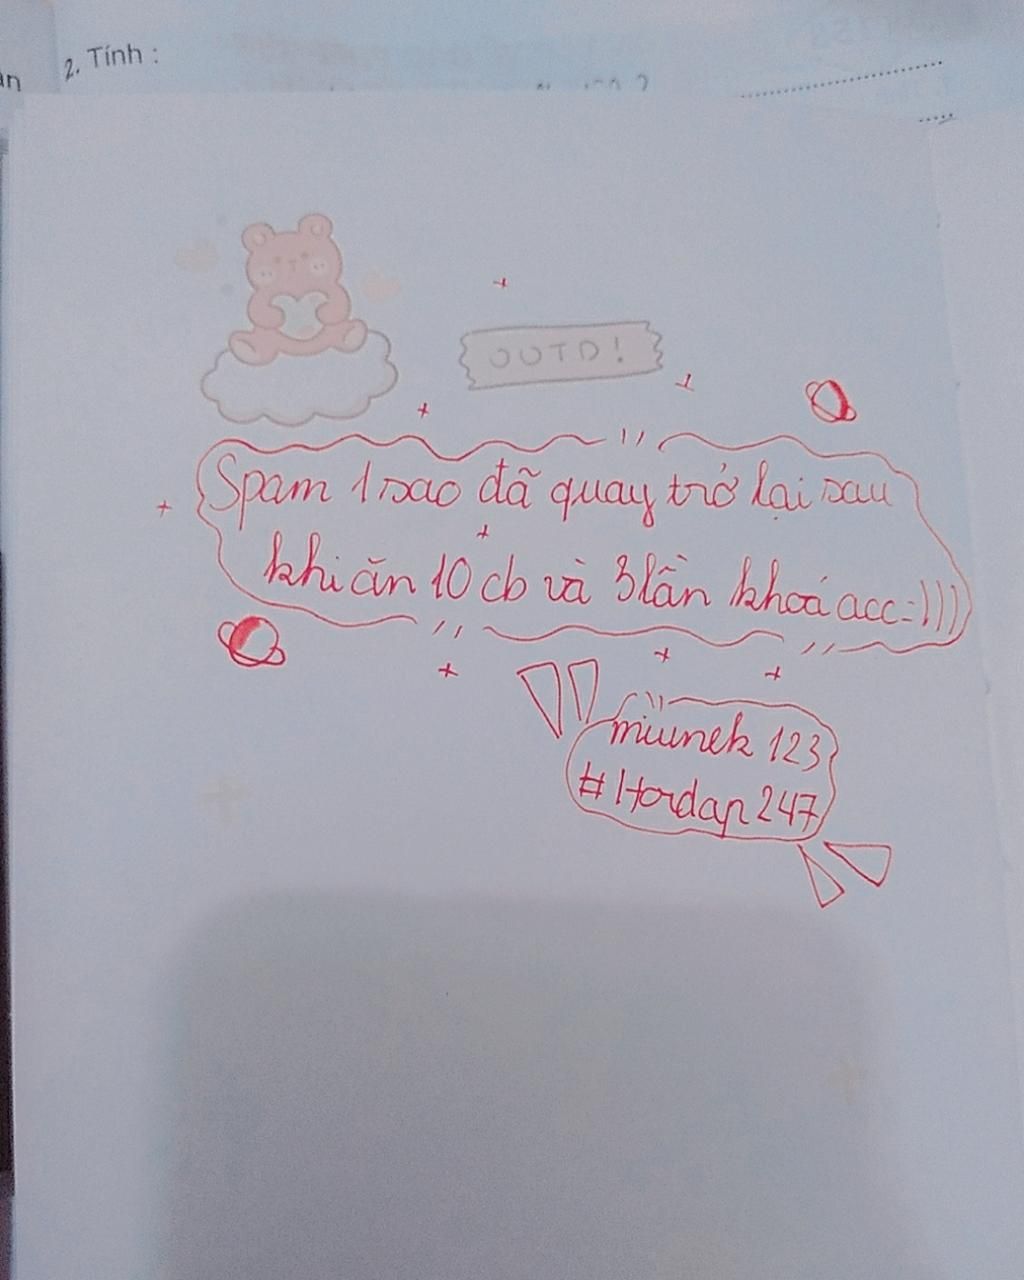 2. Tính :
OOTD!
Spam 1 sao đã quay trở lại sau
khi ăn 10 cb và 3 lần khoá acc=)))
miunek 123
#Hordap247